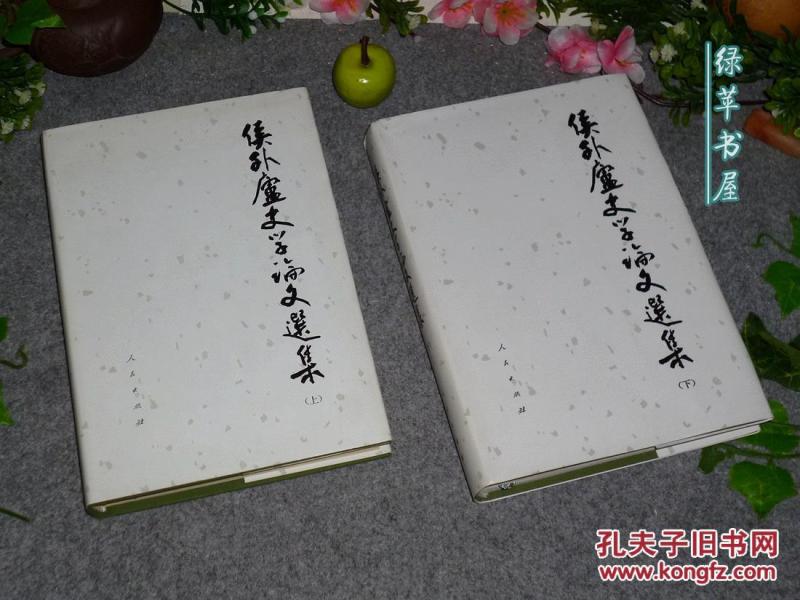 侯外廬史学論文選集
(上)
人民出版社
侯外廬史学論文選集
(下)
人民出版社
绿苹书屋
孔夫子旧书网
www.kongfz.com